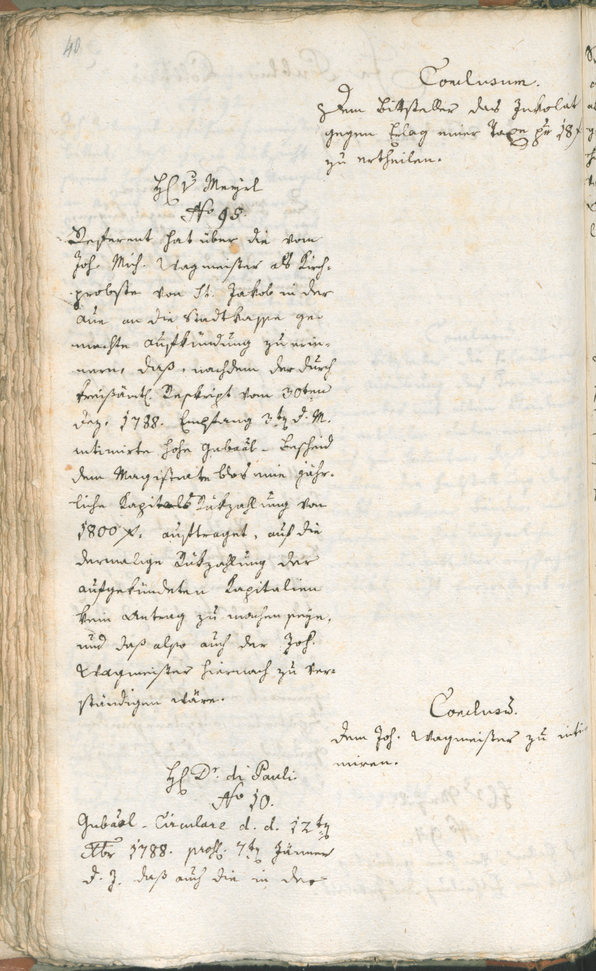 40
Conclusum.
Dem Bittsteller das Inkolat
gegen Erlag einer Taxe pr 18 f
zu ertheilen.
H. v. Mayrl
No 98.
Referent hat über die vom
Joh. Mich. Wagmeister als Kirch-
probste von St. Jakob in der
Aue an die Stadtkasse ge-
machte Aufkündung zu erin-
nern, daß, nachdem der durch
kreisämtl. Reskript vom 30ten
Dez. 1788. Empfang 3ten d. M.
intimirte hohe Gubääl-Bescheid
dem Magistrate blos eine jähr-
liche Kapitals Rükzahlung von
1800 f. auftraget, auf die
dermalige Rükzahlung der
aufgekündeten Kapitalien
kein Antrag zu machen seye,
und daß also auch der Joh.
Wagmeister hiernach zu ver-
ständigen wäre.
Conclusum.
Dem Joh. Wagmeister zu inti-
miren.
H. Dr. di Pauli
No 10.
Gubääl-Circulare d. d. 12ten
Xbr 1788. präs. 7ten Jänner
d. J. daß auch die in der